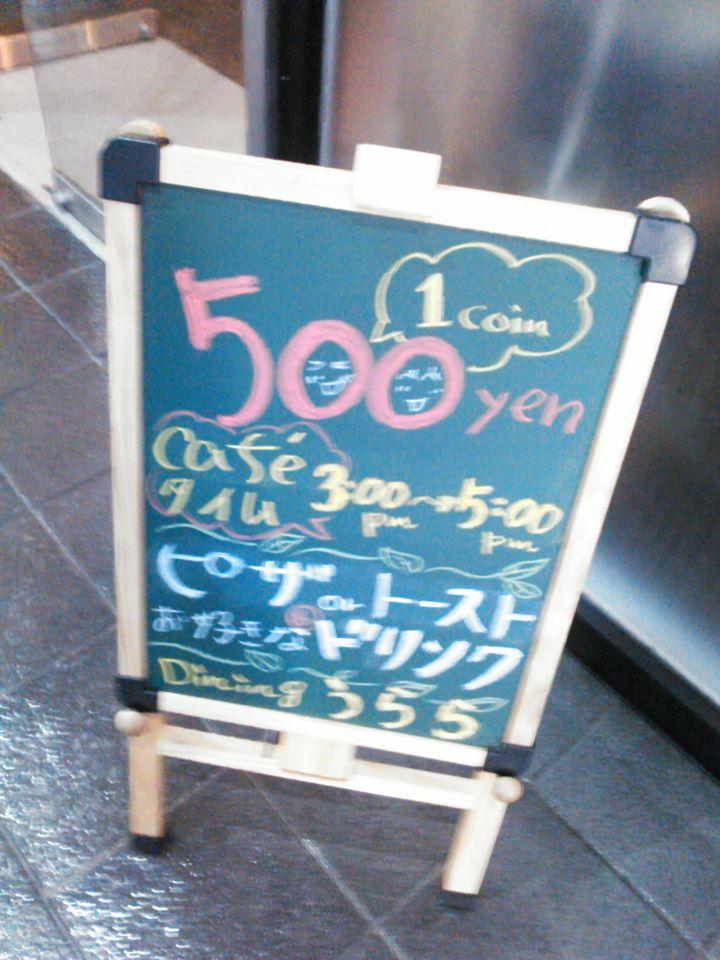 1 coin
500 yen
Café
タイム 3:00pm～5:00pm
ピザ or トースト
お好きなドリンク
Dining うらら